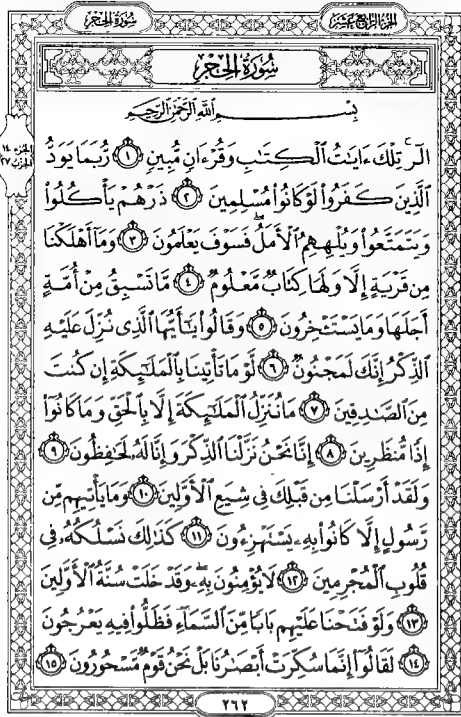 الجزء الرابع عشر
سورة الحجر
سُورَةُ الحِجْرِ
بِسْمِ اللَّهِ الرَّحْمَٰنِ الرَّحِيمِ
الجزء ١٤
الحزب ٢٧
الٓرۚ تِلۡكَ ءَايَٰتُ ٱلۡكِتَٰبِ وَقُرۡءَانٖ مُّبِينٖ ١ رُّبَمَا يَوَدُّ
ٱلَّذِينَ كَفَرُواْ لَوۡ كَانُواْ مُسۡلِمِينَ ٢ ذَرۡهُمۡ يَأۡكُلُواْ
وَيَتَمَتَّعُواْ وَيُلۡهِهِمُ ٱلۡأَمَلُۖ فَسَوۡفَ يَعۡلَمُونَ ٣ وَمَآ أَهۡلَكۡنَا
مِن قَرۡيَةٍ إِلَّا وَلَهَا كِتَابٞ مَّعۡلُومٞ ٤ مَّا تَسۡبِقُ مِنۡ أُمَّةٍ
أَجَلَهَا وَمَا يَسۡتَـٔۡخِرُونَ ٥ وَقَالُواْ يَٰٓأَيُّهَا ٱلَّذِي نُزِّلَ عَلَيۡهِ
ٱلذِّكۡرُ إِنَّكَ لَمَجۡنُونٞ ٦ لَّوۡ مَا تَأۡتِينَا بِٱلۡمَلَٰٓئِكَةِ إِن كُنتَ
مِنَ ٱلصَّٰدِقِينَ ٧ مَا نُنَزِّلُ ٱلۡمَلَٰٓئِكَةَ إِلَّا بِٱلۡحَقِّ وَمَا كَانُوٓاْ
إِذٗا مُّنظَرِينَ ٨ إِنَّا نَحۡنُ نَزَّلۡنَا ٱلذِّكۡرَ وَإِنَّا لَهُۥ لَحَٰفِظُونَ ٩
وَلَقَدۡ أَرۡسَلۡنَا مِن قَبۡلِكَ فِي شِيَعِ ٱلۡأَوَّلِينَ ١٠ وَمَا يَأۡتِيهِم مِّن
رَّسُولٍ إِلَّا كَانُواْ بِهِۦ يَسۡتَهۡزِءُونَ ١١ كَذَٰلِكَ نَسۡلُكُهُۥ فِي
قُلُوبِ ٱلۡمُجۡرِمِينَ ١٢ لَا يُؤۡمِنُونَ بِهِۦ وَقَدۡ خَلَتۡ سُنَّةُ ٱلۡأَوَّلِينَ
١٣ وَلَوۡ فَتَحۡنَا عَلَيۡهِم بَابٗا مِّنَ ٱلسَّمَآءِ فَظَلُّواْ فِيهِ يَعۡرُجُونَ
١٤ لَقَالُوٓاْ إِنَّمَا سُكِّرَتۡ أَبۡصَٰرُنَا بَلۡ نَحۡنُ قَوۡمٞ مَّسۡحُورُونَ ١٥
٢٦٢